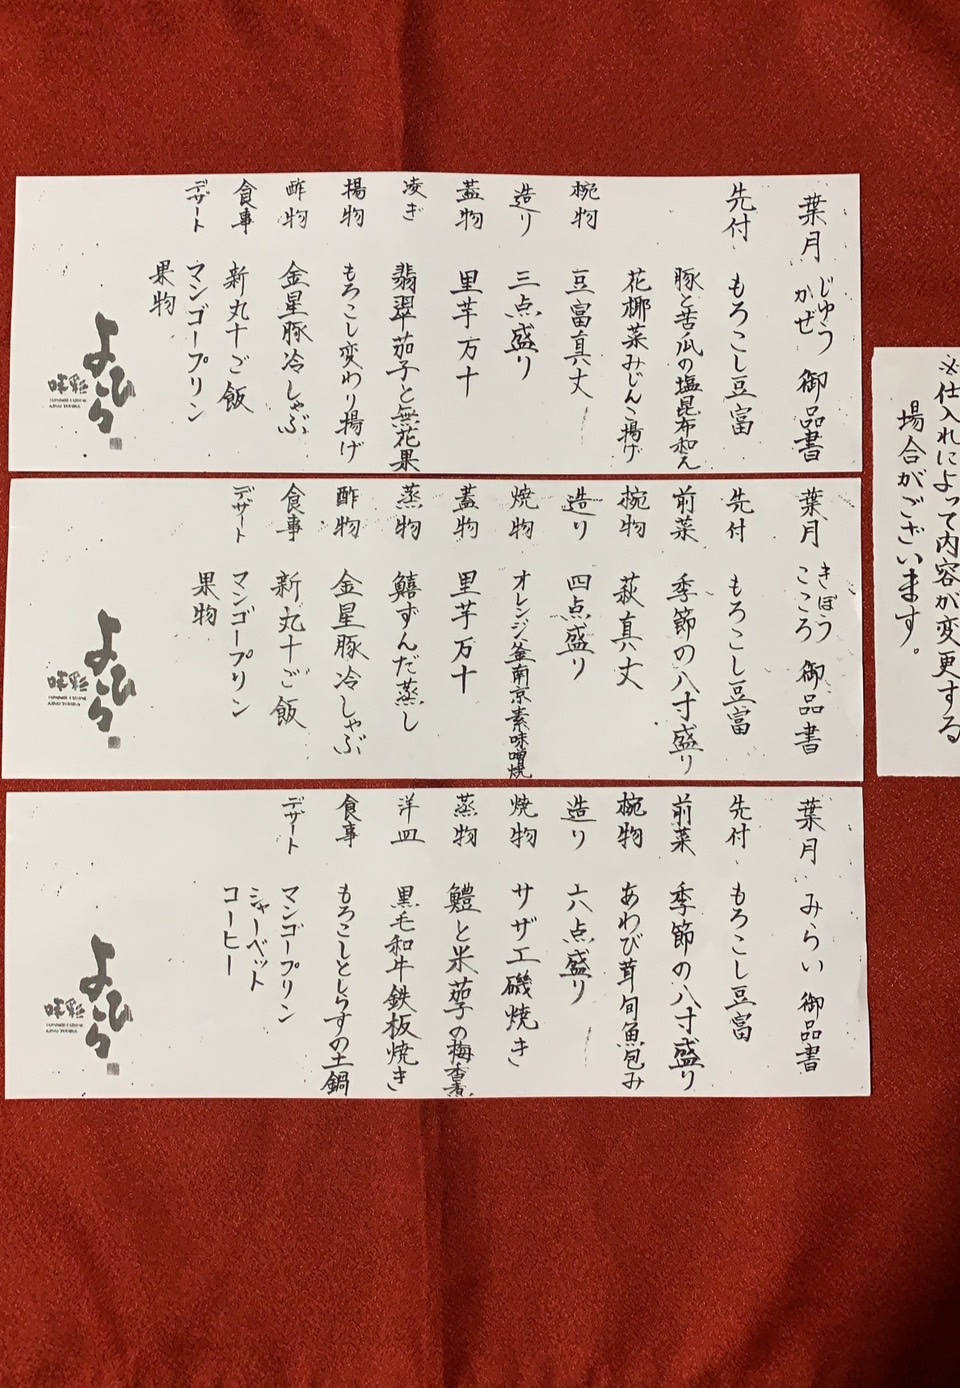 葉月 じゅうかぜ 御品書
先付 もろこし豆富
豚と苦瓜の塩昆布和え
花椰菜みじんこ揚げ
椀物 豆富真丈
造り 三点盛り
蓋物 里芋万十
凌ぎ 翡翠茄子と無花果
揚物 もろこし変わり揚げ
酢物 金星豚冷しゃぶ
食事 新丸十ご飯
デザート マンゴープリン
果物
よひら
味彩
葉月 きぼう こころ 御品書
先付 もろこし豆富
前菜 季節の八寸盛り
椀物 萩真丈
造り 四点盛り
焼物 オレンジ釜南京素味噌焼
蓋物 里芋万十
蒸物 鱚ずんだ蒸し
酢物 金星豚冷しゃぶ
食事 新丸十ご飯
デザート マンゴープリン
果物
よひら
味彩
葉月 みらい 御品書
先付 もろこし豆富
前菜 季節の八寸盛り
椀物 あわび茸旬魚包み
造り 六点盛り
焼物 サザエ磯焼き
蒸物 鱧と米茄子の梅香煮
洋皿 黒毛和牛鉄板焼き
食事 もろこしとしらすの土鍋
デザート マンゴープリン
シャーベット
コーヒー
よひら
味彩
※仕入れによって内容が変更する
場合がございます。